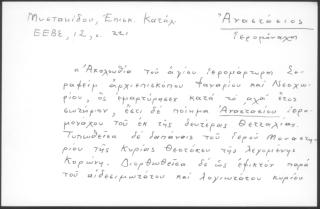 Μυστακίδου, Επισκ. Κατάλ.
Ἀναστάσιος
ΕΕΒΣ, 12, σ. 221
ἱερομόναχος
"Ἀκολουθία τοῦ ἁγίου ἱερομάρτυρος Σε-
ραφείμ ἀρχιεπισκόπου Φαναρίου καί Νεοχω-
ρίου, ὃς ἐμαρτύρησε κατά τό αχα' ἔτος
σωτήριον, ἔστι δέ ποίημα Ἀναστασίου ἱερο-
μονάχου τοῦ ἐκ τῆς δευτέρας Θετταλίας.
Τυπωθεῖσα δέ δαπάναις τοῦ ἱεροῦ Μοναστη-
ρίου τῆς Κυρίας Θεοτόκου τῆς λεγομένης
Κορώνη. Διορθωθεῖσα δέ ὡς ἐφικτόν παρά
τοῦ αἰδεσιμωτάτου καί λογιωτάτου κυρίου